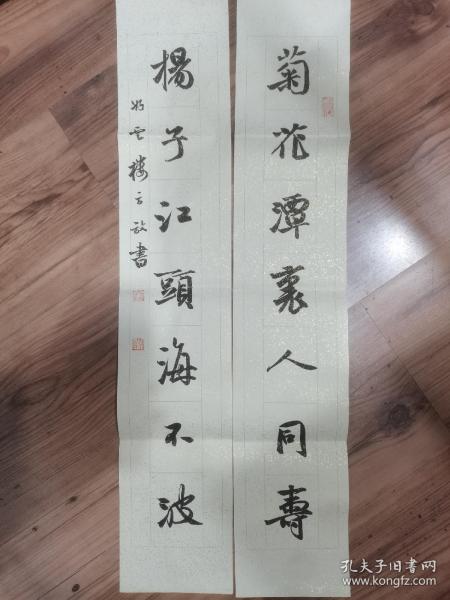 菊花潭裏人同壽
楊子江頭海不波
樓主敬書
孔夫子旧书网
www.kongfz.com